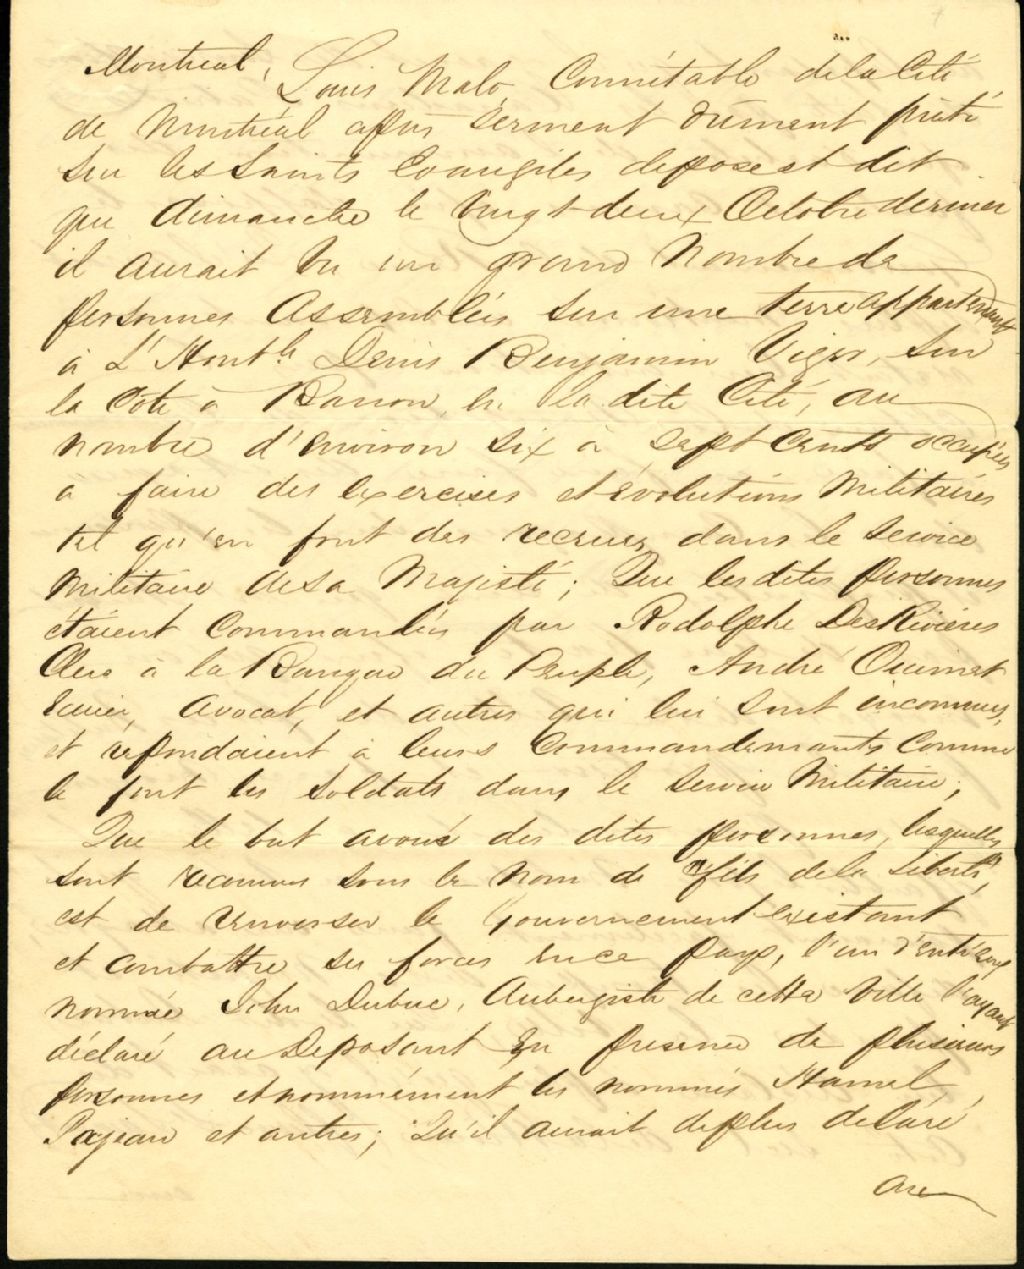 Montreal, Louis Malo, Connétable de la Cité
de Montréal après serment dûment prêté
sur les Saints Evangiles depose et dit
que dimanche le vingt-deux Octobre dernier
il aurait vu un grand nombre de
personnes assemblées sur une terre appartenant
à L'Honble Denis Benjamin Viger, sur
la Cote à Barron, en la dite Cité, au
nombre d'environ six à sept cents occupées
à faire des exercises et évolutions militaires
tel qu'en font des recrues dans le service
militaire de sa Majesté; Que les dites personnes
étaient commandées par Rodolphe DesRivières
Clerc à la Banque du Peuple, André Ouimet
Ecuier, avocat, et autres qui lui sont inconnus,
et répondaient à leurs commandemants comme
le font les soldats dans le service militaire;
Que le but avoué des dites personnes, lesquelles
sont reconnus sous le nom de "fils de la Liberté",
est de renverser le Gouvernement existant
et combattre ses forces en ce pays, l'un d'entr'eux
nommée John Dubuc, Aubergiste de cette ville l'ayant
déclaré au Déposant en presence de plusieurs
personnes et nommément les nommés Hamel,
Pajeau et autres; Qu'il aurait de plus déclaré